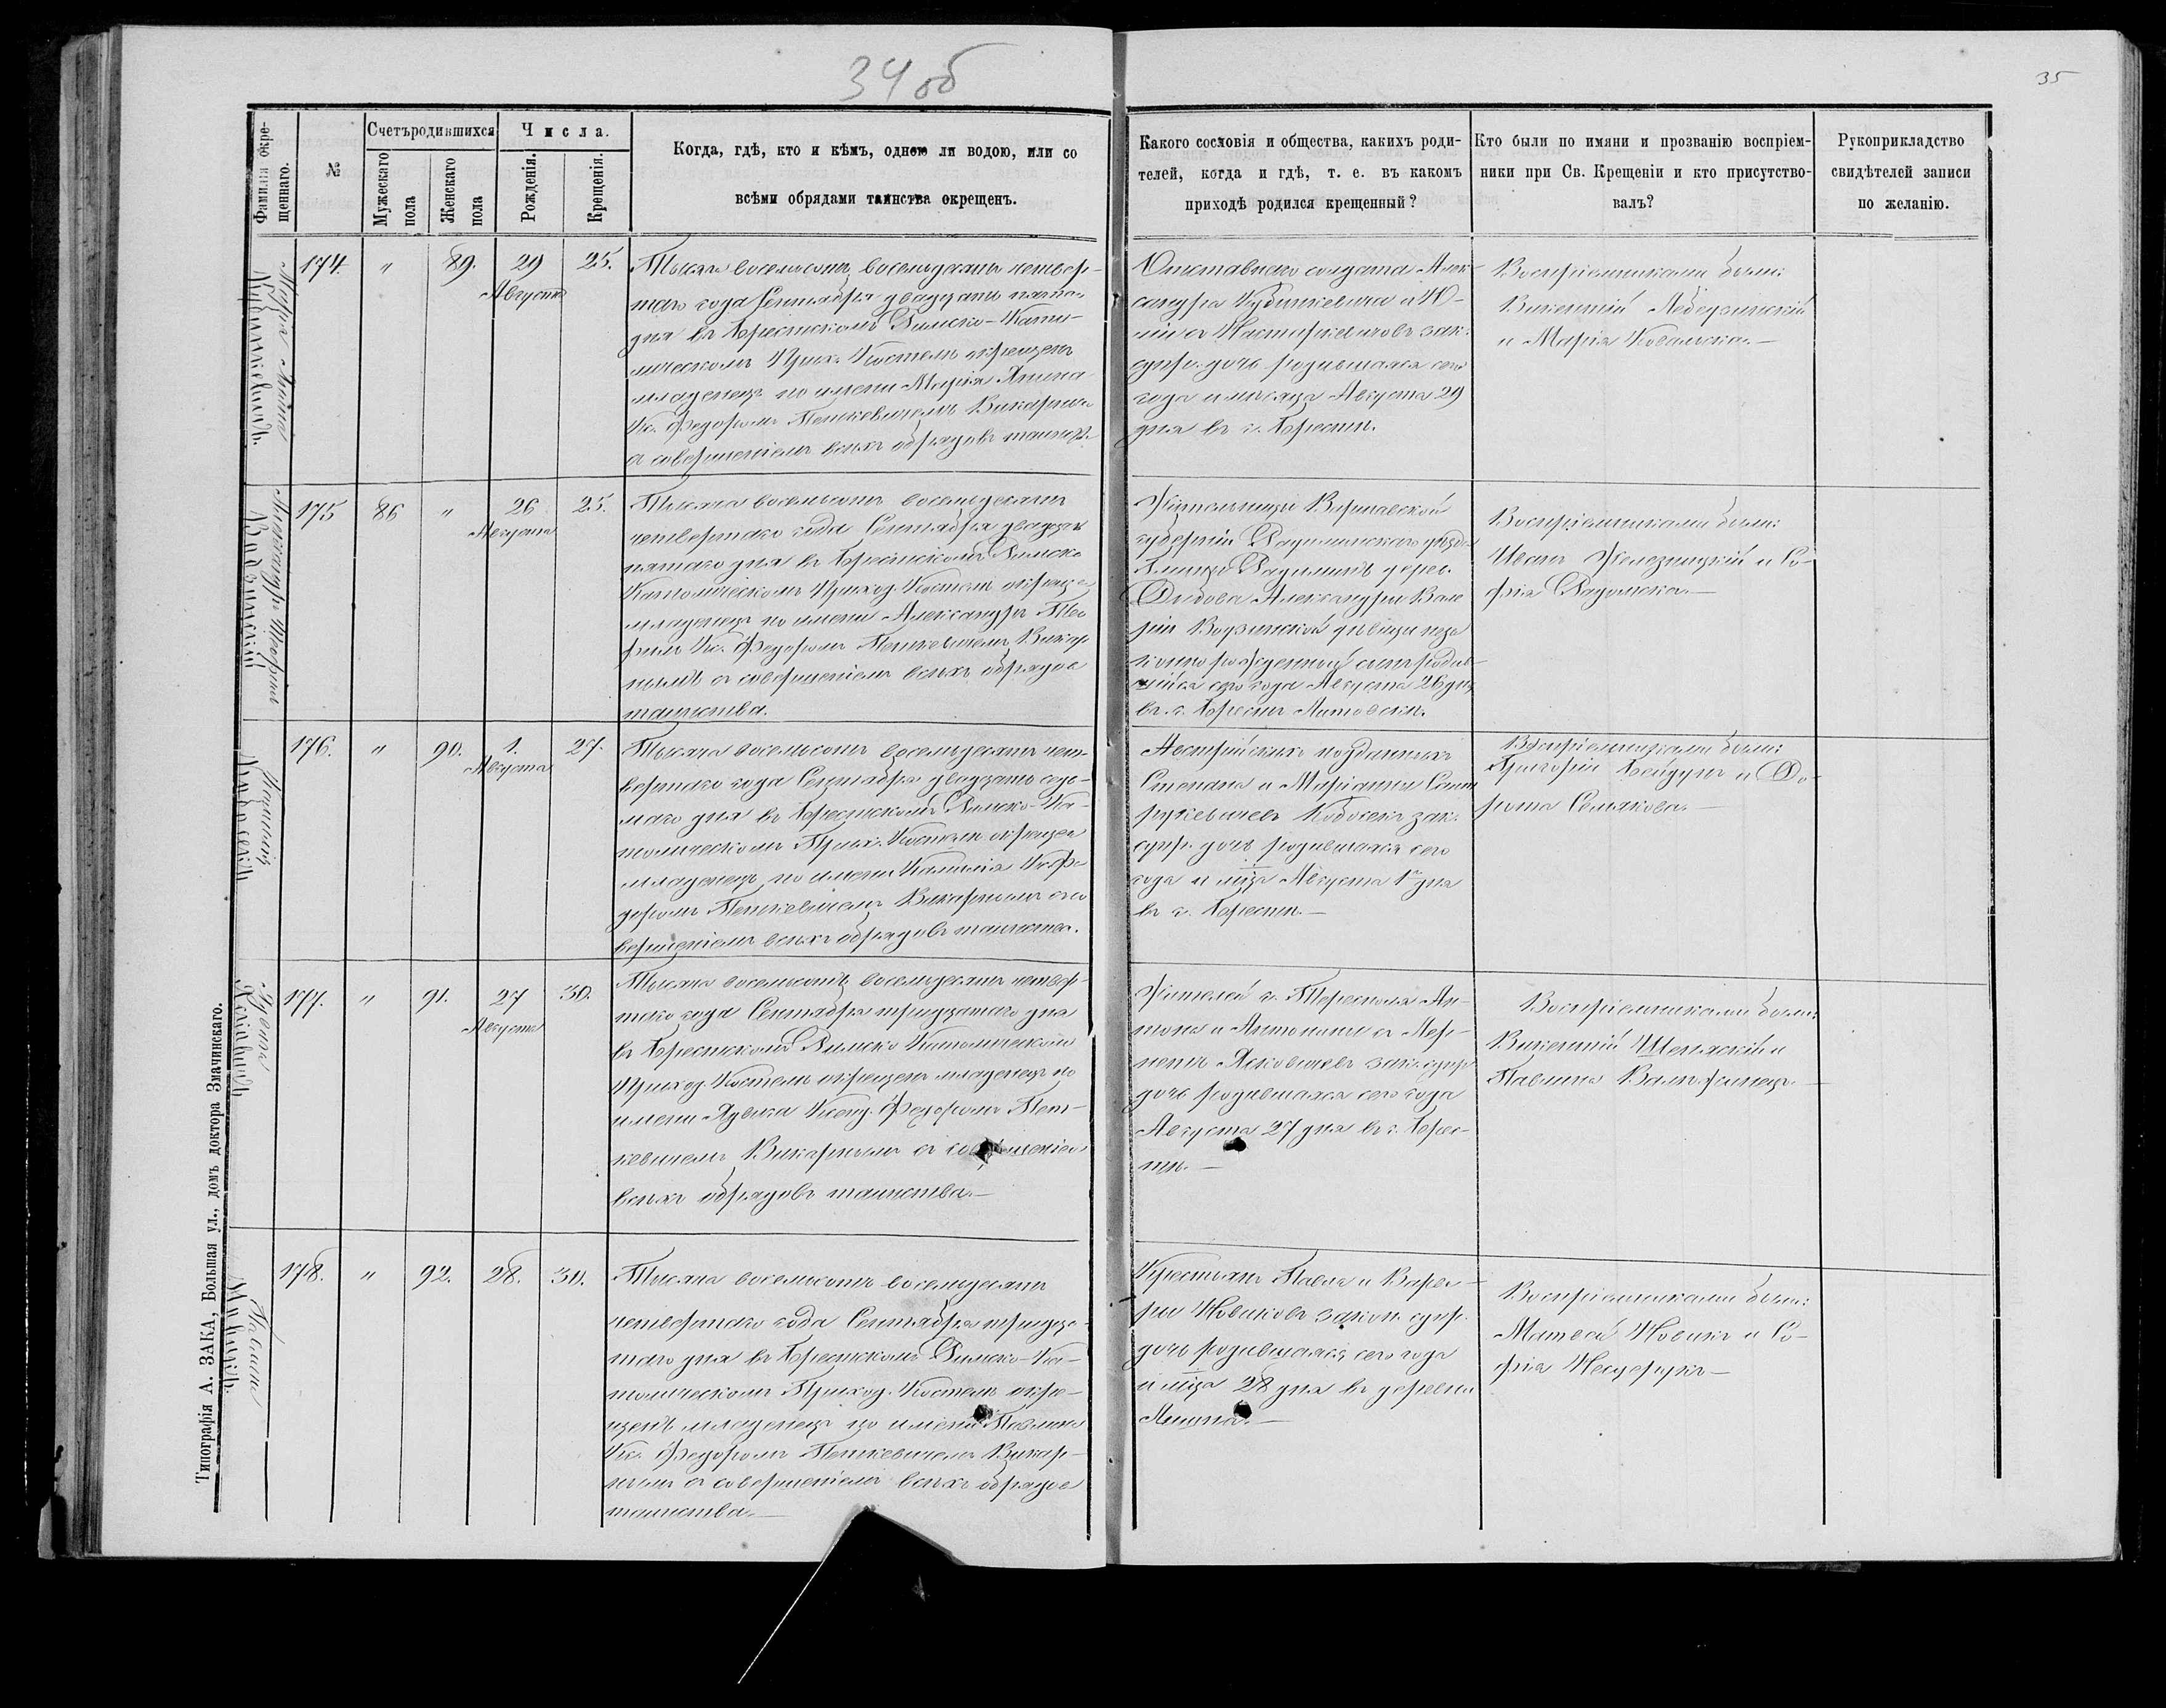 34 об
35
Фамилія окре-
щеннаго.
№
Счетъ родившихся
Мужескаго
пола
Женскаго
пола
Числа.
Рожденія.
Крещенія.
Когда, гдѣ, кто и кѣмъ, одною ли водою, или со
всѣми обрядами таинства окрещенъ.
Какого сословія и общества, какихъ роди-
телей, когда и гдѣ, т. е. въ какомъ
приходѣ родился крещенный?
Кто были по имяни и прозванію воспріем-
ники при Св. Крещеніи и кто присутство-
валъ?
Рукоприкладство
свидѣтелей записи
по желанію.
174.
"
89.
29
Августа
25.
Тысяча восемьсотъ восемьдесятъ четвер-
таго года Сентября двадцать пятаго
дня въ Брестскомъ Римско-Като-
лическомъ Прих. Костелѣ окрещенъ
младенецъ по имени Марія
Кс. Федоромъ Петкевичемъ Викарнымъ
съ совершеніемъ всѣхъ обрядовъ таинст.
Отставнаго солдата Алек-
сандра
законн.
супр. дочь родившаяся сего
года и мѣсяца Августа 29
дня въ г. Брестѣ.
Воспріемниками были:
Викентій
и Марія Ковальска.—
175
86
"
26
Августа
25.
Александръ Теофилъ
Тысяча восемьсотъ восемьдесятъ
четвертаго года Сентября двадцать
пятаго дня въ Брестскомъ Римско
Католическомъ Приход. Костелѣ окреще
младенецъ по имени Александръ Тео
филъ Кс. Федоромъ Петкевичемъ Викар
нымъ съ совершеніемъ всѣхъ обрядов
таинства.
Жительницы Варшавской
губерніи Радиминского уѣзд.
Гмины Радиминъ дерев.
Александры Вале
ріи дѣвицы неза
конно рожденный сынъ родив-
шійся сего года Августа 26 дня
въ г. Брестѣ Литовскѣ.
Воспріемниками были:
Иванъ Железницкій и Со-
фія Радомска.—
176.
"
90.
1.
Августа
27.
Тысяча восемьсотъ восемьдесятъ чет-
вертаго года Сентября двадцать седь-
маго дня въ Брестскомъ Римско-Ка-
толическомъ Прих. Костелѣ окрещен
младенецъ по имени Камилія Кс. Фе
доромъ Петкевичемъ Викарнымъ съ со
вершеніемъ всѣхъ обрядовъ таинства.
Австрійскихъ подданныхъ
Степана и Маріанны
зак.
супр. дочь родившаяся сего
года и мца Августа 1го дня
въ г. Брестѣ.—
Воспріемниками были:
Григорій Бейдунъ и До-
рота Семякова.—
177.
"
91.
27
Августа
30.
Тысяча восемьсотъ восемьдесятъ четвер-
таго года Сентября тридцатаго дня
въ Брестскомъ Римско Католическомъ
Приход. Костелѣ окрещенъ младенецъ по
имени Ядвига Ксенд. Федоромъ Пет-
кевичемъ Викарнымъ съ совершеніем
всѣхъ обрядовъ таинства.—
Жителей г. Тересполя Ан-
тона и Антонины съ
Ясковичевъ зак. супр
дочь родившаяся сего года
Августа 27 дня въ г. Брес-
тѣ.—
Воспріемниками были:
Викентій и
Павлина
178.
"
92.
28.
30.
Павлина
Тысяча восемьсотъ восемьдесятъ
четвертаго года Сентября тридца-
таго дня въ Брестскомъ Римско-Ка-
толическомъ Приход. Костелѣ окре-
щенъ младенецъ по имени Павлина
Кс. Федоромъ Петкевичемъ Викар-
нымъ съ совершеніемъ всѣхъ обрядов
таинства.—
Крестьянъ Павла и Варва-
ры Новиковъ законн. супр.
дочь родившаяся сего года
и мца 28 дня въ деревни
Воспріемниками были:
Матвей Новикъ и Со-
фія
Типографія А. ЗАКА, Большая ул., домъ доктора Значинскаго.